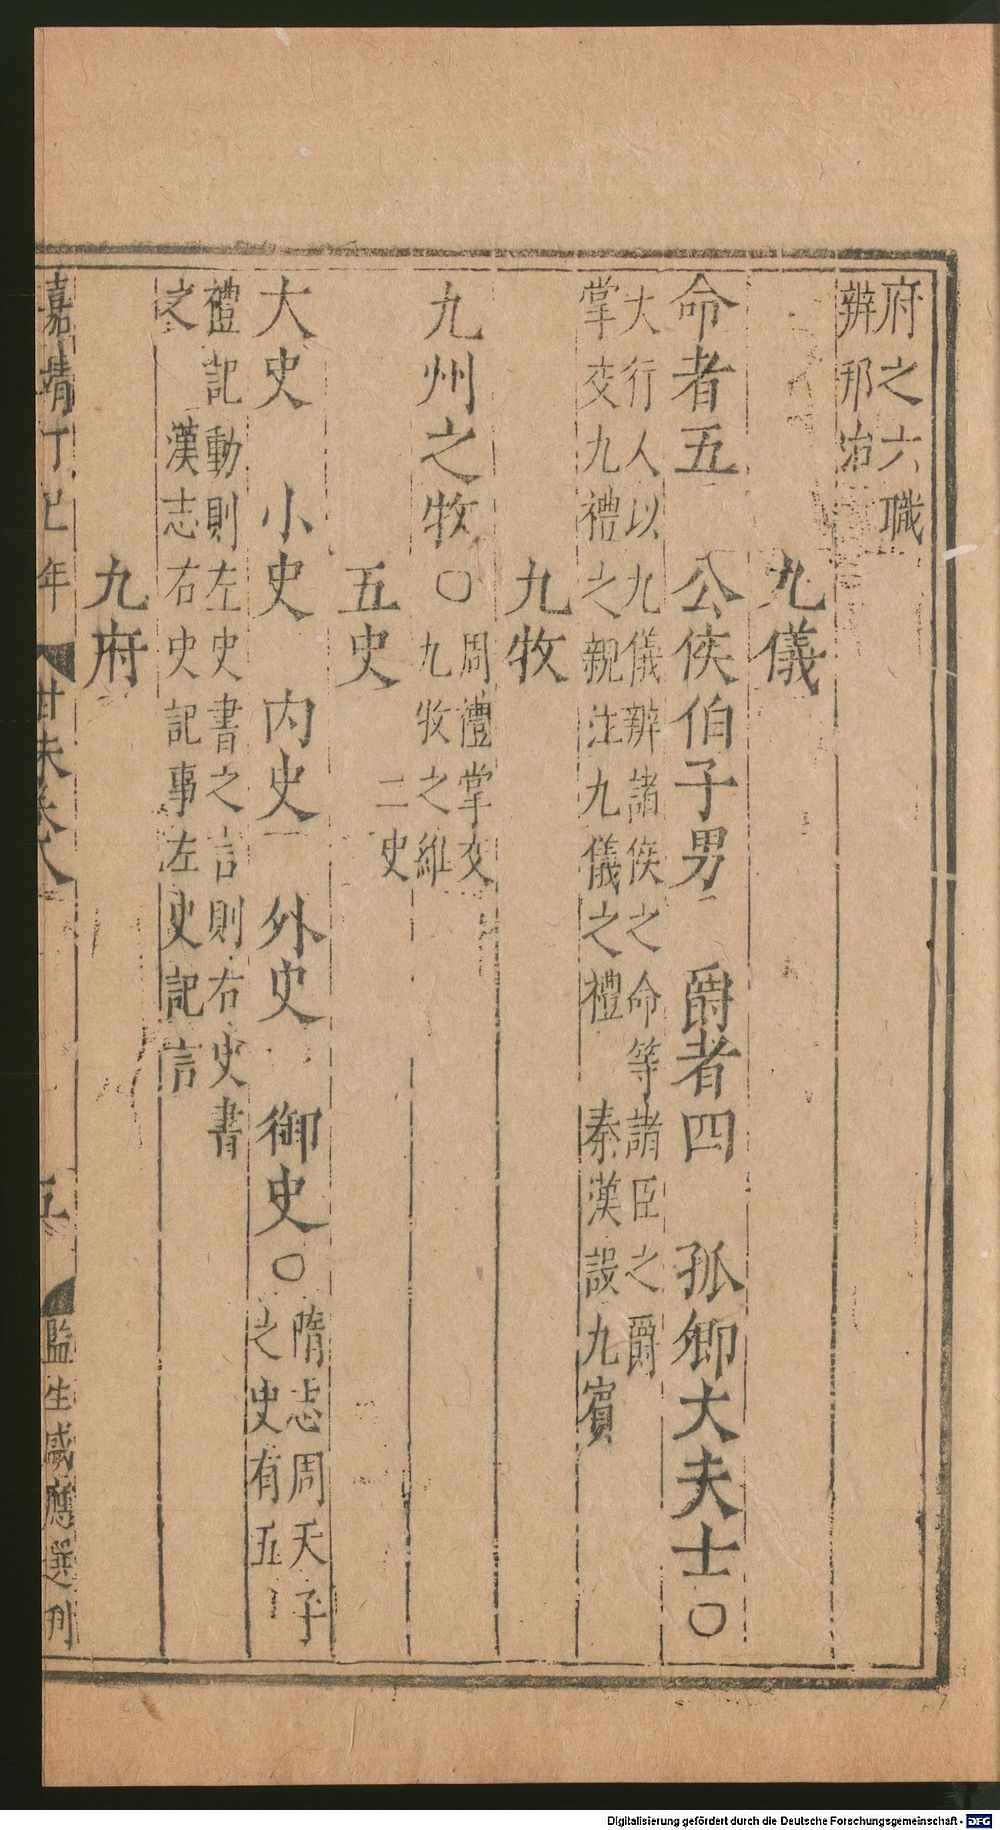 府之六職
辨邦治
九儀
命者五　公侯伯子男　爵者四　孤卿大夫士○
大行人以九儀辨諸侯之命等諸臣之爵
掌交九禮之親注九儀之禮　秦漢設九賓
九牧
九州之牧○周禮掌交
九牧之維
五史　二史
大史　小史　内史　外史　御史○隋志周天子
之史有五
禮記動則左史書之言則右史書
之　漢志右史記事左史記言
九府
嘉靖丁巳年
監生戚應選刊
Digitalisierung gefördert durch die Deutsche Forschungsgemeinschaft - DFG